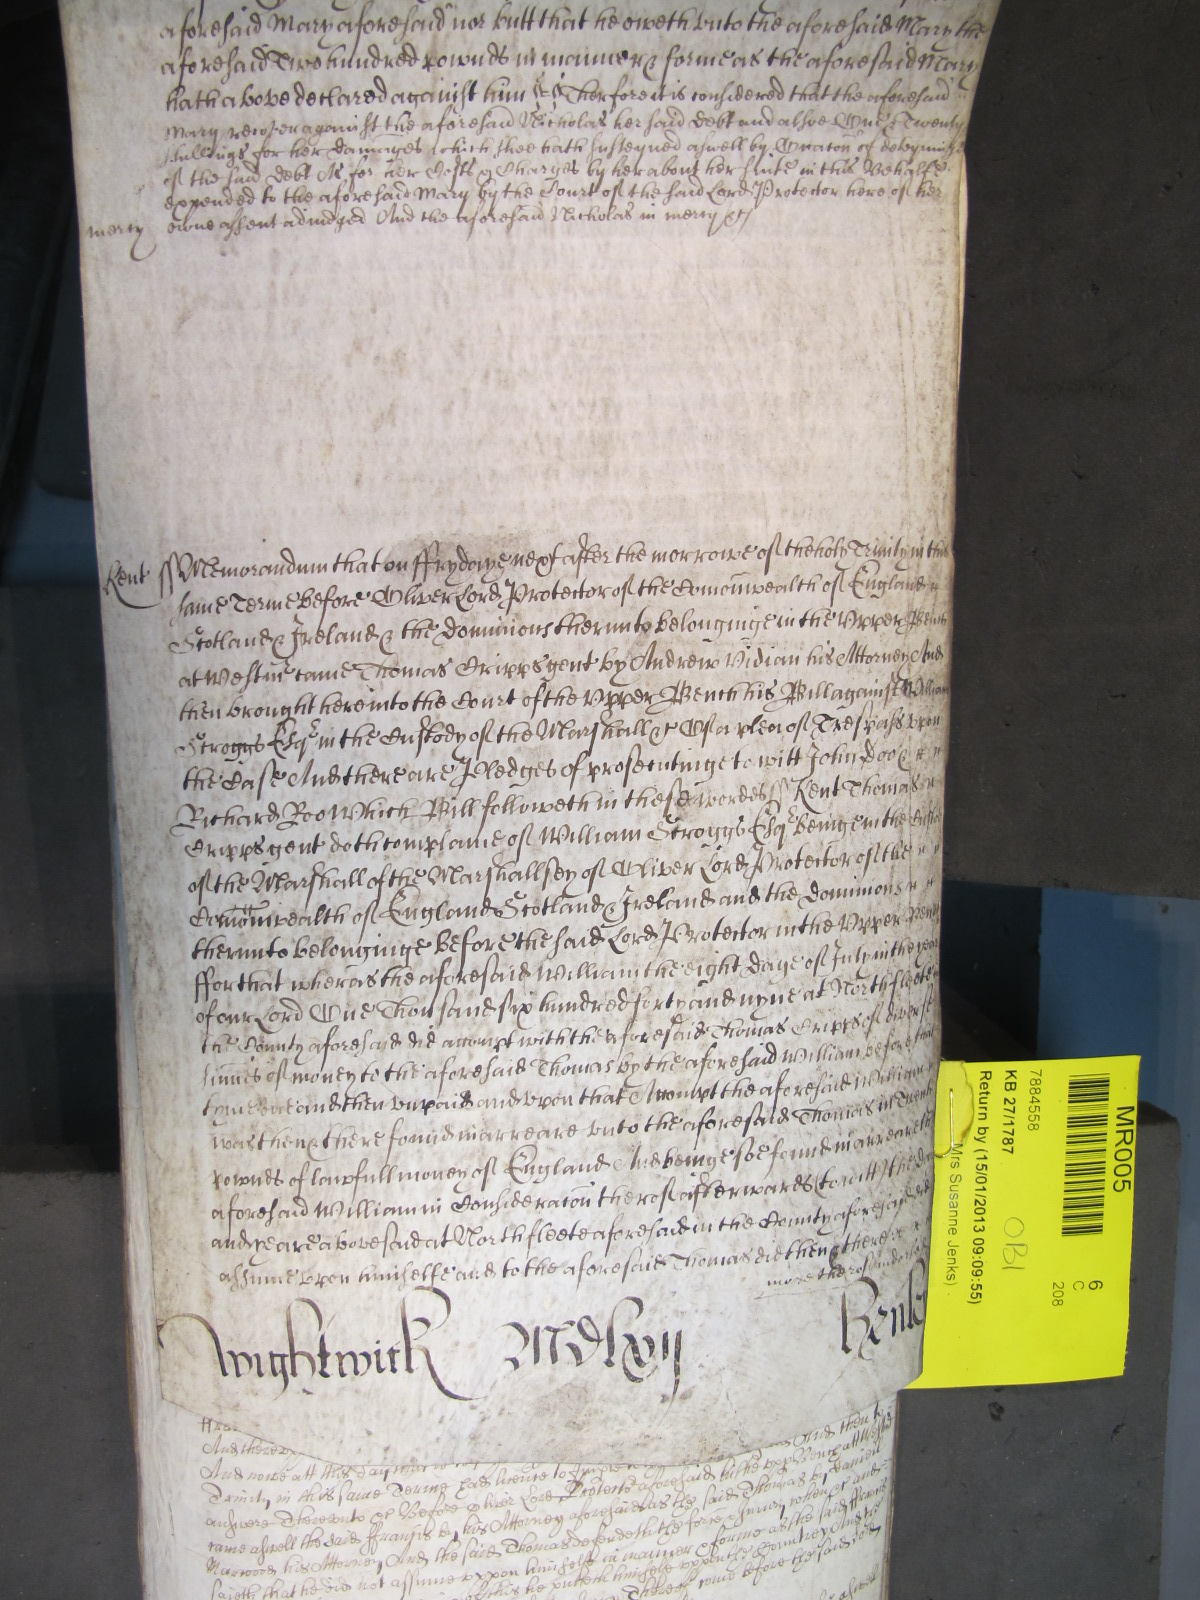 aforesaid Mary aforesaid nor butt that he oweth unto the aforesaid Mary the
aforesaid Two hundred pownds in manner & forme as the aforesaid Mary
hath above declared against him Therfore it is considered that the aforesaid
Mary recover against the aforesaid Nicholas her said debt and alsoe One & Twenty
shillings for her damages which shee hath susteyned aswell by Occacon of deteyninge
of the said debt As for her Costs & Charges by her about her suite in this behalfe
expended to the aforesaid Mary by the Court of the said Lord Protector here of her
owne assent adiudged And the aforesaid Nicholas in mercy &c
mercy
Kent
ss Memorandum that on ffrydaye next after the morrowe of the holy Trinity in this
same Terme before Oliver Lord Protector of the Comonwealth of England
Scotland & Ireland & the dominions therunto belonginge in the Upper Bench
at Westmr came Thomas Cripps gent by Andrew Vidian his Attorney And
then brought here into the Court of the Upper Bench his Bill against William
Scroggs Esqr in the Custody of the Marshall &c Of a plea of Trespass upon
the Case And there are Pledges of prosecutinge to witt John Doo &
Richard Roo Which Bill followeth in these wordes ss Kent Thomas
Cripps gent doth complaine of William Scroggs Esqr beinge in the Custody
of the Marshall of the Marshallsey of Oliver Lord Protector of the
Comonwealth of England Scotland & Ireland and the dominions
therunto belonginge before the said Lord Protector in the Upper Bench
ffor that wheras the aforesaid William the eight daye of July in the yeare
of our Lord One Thousand six hundred forty and nyne at Northfleete
the County aforesaid did accompt with the aforesaid Thomas Cripps of diverse
summes of money to the aforesaid Thomas by the aforesaid William before that
tyme and then unpaid and upon that Accompt the aforesaid William
was then & there found in arreare unto the aforesaid Thomas in Twenty
pownds of lawfull money of England And beinge soe found in arreare the
aforesaid William in Consideracon therof afterwards (to witt) the daye
and yeare abovesaid at Northfleete aforesaid in the County aforesaid did
assume upon himselfe and to the aforesaid Thomas did then & there
more therof
Wightwick MDlxvij Henl
And nowe att this day
Trinity in this same Terme had licence to Imparle
answere Thereunto &c Before Oliver Lord Protector aforesaid in the upper Bench att Westmr
came aswell the said ffrancis by his Attorney aforesaid as the said Thomas by Daniell
Norwood his Attorney And the said Thomas defendeth the force & Iniury when &c and
saieth that he did not assume uppon himselfe in manner & forme as the said ffrancis
this he putteth himselfe uppon the Countrey And the
MR005
6
C
208
7884558
KB 27/1787
OBI
Return by (15/01/2013 09:09:55)
Mrs Susanne Jenks)